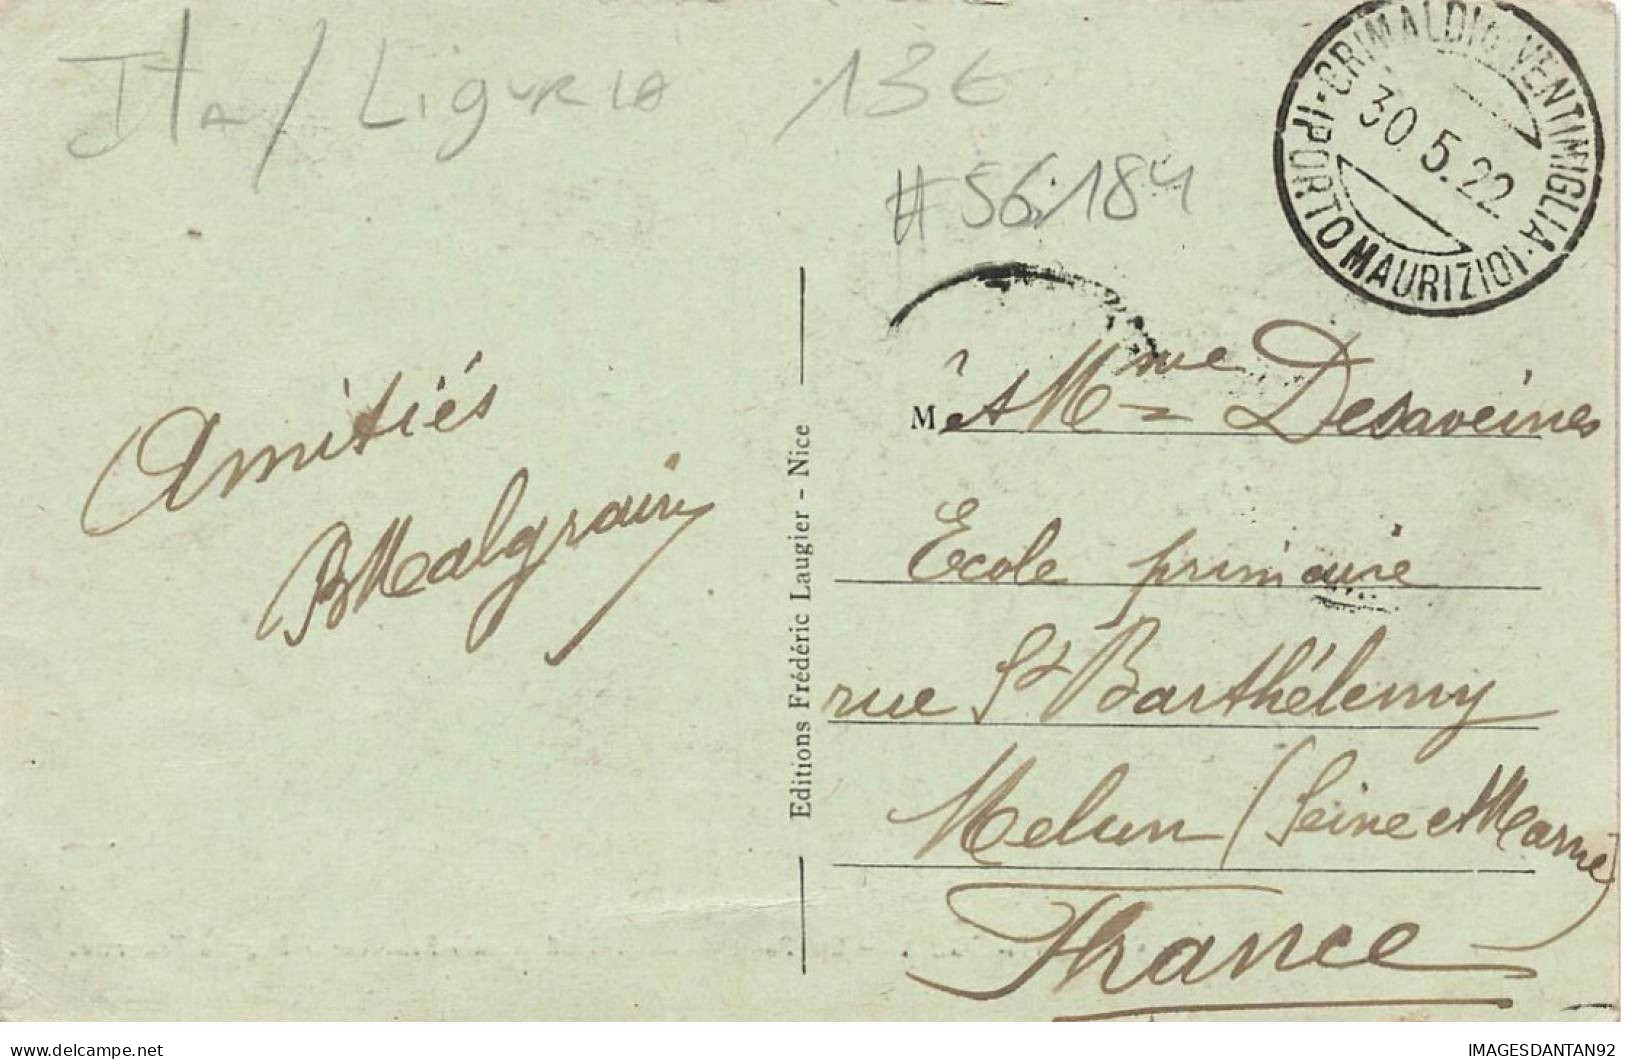 Ita / Liguria 13€
#56/184
GRIMALDI DI VENTIMIGLIA
(PORTO MAURIZIO)
30.5.22
Amitiés
Malgrain
Editions Frédéric Laugier - Nice
M et à Mme Desaveines
Ecole primaire
rue St Barthélemy
Melun (Seine et Marne)
France
delcampe.net
IMAGESDANTAN92